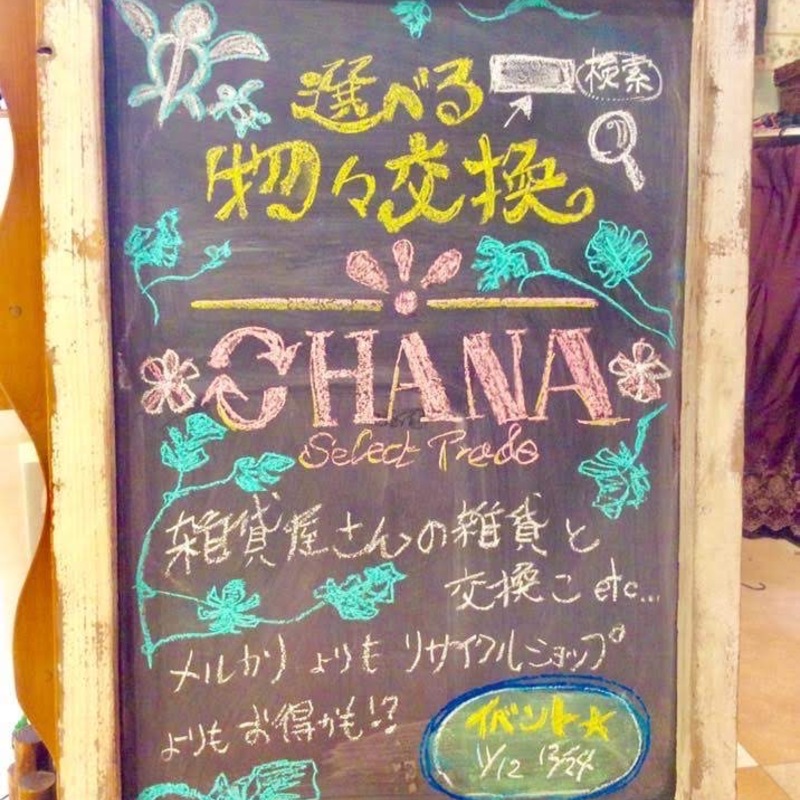 選べる 検索
物々交換
OHANA
Select Trade
雑貨屋さんの雑貨と
交換こ etc...
メルカリよりもリサイクルショップ
よりもお得かも!?
イベント★
11/12